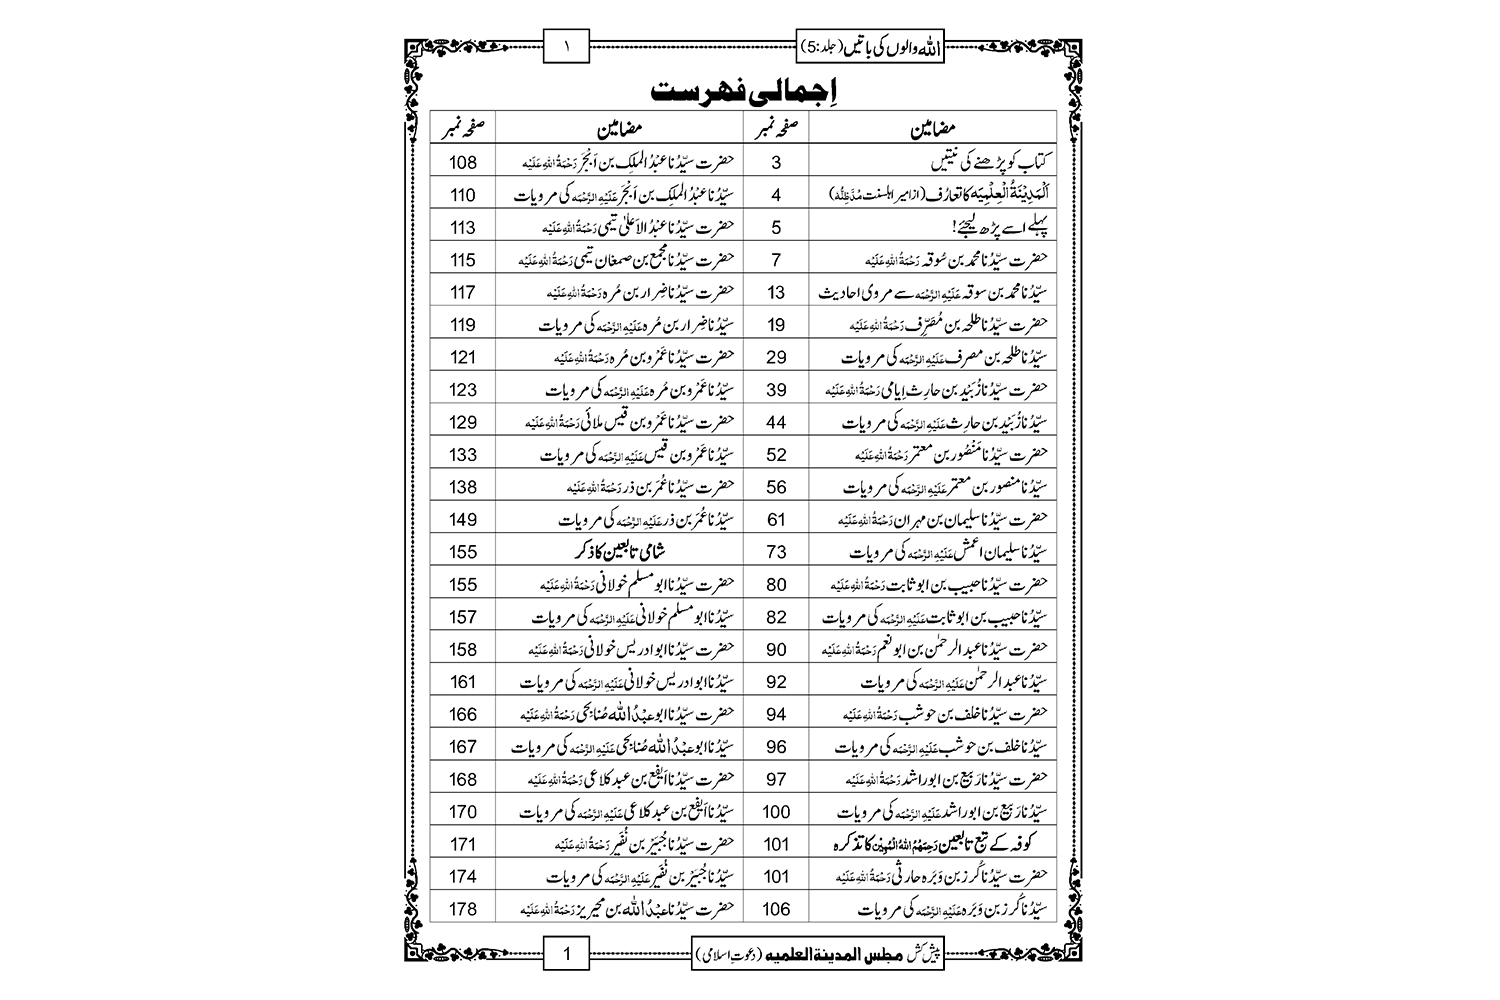 اللہ والوں کی باتیں (جلد:5)
۱
اِجمالی فہرست
مضامین صفحہ نمبر مضامین صفحہ نمبر
کتاب کو پڑھنے کی نیتیں 3 حضرت سیِّدُنا عبْدُ الملِک بن اَبْجَر رَحْمَۃُ اللہِ عَلَیْہ 108
اَلْمَدِیْنَۃُ الْعِلْمِیَہ کا تعارف (از امیر اہلسنت مُدَّظِلُّہُ) 4 سیِّدُنا عبْدُ الملِک بن اَبْجَر عَلَیْہِ الرَّحْمَہ کی مرویات 110
پہلے اسے پڑھ لیجئے! 5 حضرت سیِّدُنا عبْدُ الاَعلٰی تیمی رَحْمَۃُ اللہِ عَلَیْہ 113
حضرت سیِّدُنا محمد بن سُوقہ رَحْمَۃُ اللہِ عَلَیْہ 7 حضرت سیِّدُنا مجمع بن صمغان تیمی رَحْمَۃُ اللہِ عَلَیْہ 115
سیِّدُنا محمد بن سوقہ عَلَیْہِ الرَّحْمَہ سے مروی احادیث 13 حضرت سیِّدُنا ضِرار بن مُرہ رَحْمَۃُ اللہِ عَلَیْہ 117
حضرت سیِّدُنا طلحہ بن مُصَرِّف رَحْمَۃُ اللہِ عَلَیْہ 19 سیِّدُنا ضِرار بن مُرہ عَلَیْہِ الرَّحْمَہ کی مرویات 119
سیِّدُنا طلحہ بن مصرف عَلَیْہِ الرَّحْمَہ کی مرویات 29 حضرت سیِّدُنا عَمْرو بن مُرہ رَحْمَۃُ اللہِ عَلَیْہ 121
حضرت سیِّدُنا زُبَیْد بن حارِث اِیامی رَحْمَۃُ اللہِ عَلَیْہ 39 سیِّدُنا عَمْرو بن مُرہ عَلَیْہِ الرَّحْمَہ کی مرویات 123
سیِّدُنا زُبَیْد بن حارِث عَلَیْہِ الرَّحْمَہ کی مرویات 44 حضرت سیِّدُنا عَمْرو بن قیس ملائی رَحْمَۃُ اللہِ عَلَیْہ 129
حضرت سیِّدُنا مَنْصُور بن معتمر رَحْمَۃُ اللہِ عَلَیْہ 52 سیِّدُنا عَمْرو بن قیس عَلَیْہِ الرَّحْمَہ کی مرویات 133
سیِّدُنا منصور بن معتمر عَلَیْہِ الرَّحْمَہ کی مرویات 56 حضرت سیِّدُنا عُمَر بن ذر رَحْمَۃُ اللہِ عَلَیْہ 138
حضرت سیِّدُنا سلیمان بن مہران رَحْمَۃُ اللہِ عَلَیْہ 61 سیِّدُنا عُمَر بن ذر عَلَیْہِ الرَّحْمَہ کی مرویات 149
سیِّدُنا سلیمان اعمش عَلَیْہِ الرَّحْمَہ کی مرویات 73 شامی تابعین کا ذکر 155
حضرت سیِّدُنا حبیب بن ابو ثابت رَحْمَۃُ اللہِ عَلَیْہ 80 حضرت سیِّدُنا ابو مسلم خولانی رَحْمَۃُ اللہِ عَلَیْہ 155
سیِّدُنا حبیب بن ابو ثابت عَلَیْہِ الرَّحْمَہ کی مرویات 82 سیِّدُنا ابو مسلم خولانی عَلَیْہِ الرَّحْمَہ کی مرویات 157
حضرت سیِّدُنا عبد الرحمٰن بن ابو نعم رَحْمَۃُ اللہِ عَلَیْہ 90 حضرت سیِّدُنا ابو ادریس خولانی رَحْمَۃُ اللہِ عَلَیْہ 158
سیِّدُنا عبد الرحمٰن عَلَیْہِ الرَّحْمَہ کی مرویات 92 سیِّدُنا ابو ادریس خولانی عَلَیْہِ الرَّحْمَہ کی مرویات 161
حضرت سیِّدُنا خلف بن حوشب رَحْمَۃُ اللہِ عَلَیْہ 94 حضرت سیِّدُنا ابو عبْدُ اللہ صُنابحی رَحْمَۃُ اللہِ عَلَیْہ 166
سیِّدُنا خلف بن حوشب عَلَیْہِ الرَّحْمَہ کی مرویات 96 سیِّدُنا ابو عبْدُ اللہ صُنابحی عَلَیْہِ الرَّحْمَہ کی مرویات 167
حضرت سیِّدُنا رَبیع بن ابو راشد رَحْمَۃُ اللہِ عَلَیْہ 97 حضرت سیِّدُنا اَیفع بن عبد کلاعی رَحْمَۃُ اللہِ عَلَیْہ 168
سیِّدُنا رَبیع بن ابو راشد عَلَیْہِ الرَّحْمَہ کی مرویات 100 سیِّدُنا اَیفع بن عبد کلاعی عَلَیْہِ الرَّحْمَہ کی مرویات 170
کوفہ کے تبع تابعین رَحِمَہُمُ اللہُ الْمُبِیْن کا تذکرہ 101 حضرت سیِّدُنا جُبَیْر بن نُفَیر رَحْمَۃُ اللہِ عَلَیْہ 171
حضرت سیِّدُنا کُرز بن وَبَرہ حارثی رَحْمَۃُ اللہِ عَلَیْہ 101 سیِّدُنا جُبَیْر بن نُفَیر عَلَیْہِ الرَّحْمَہ کی مرویات 174
سیِّدُنا کُرز بن وَبَرہ عَلَیْہِ الرَّحْمَہ کی مرویات 106 حضرت سیِّدُنا عبْدُ اللہ بن محیریز رَحْمَۃُ اللہِ عَلَیْہ 178
پیش کش مجلس المدینۃ العلمیہ (دعوتِ اسلامی)
1